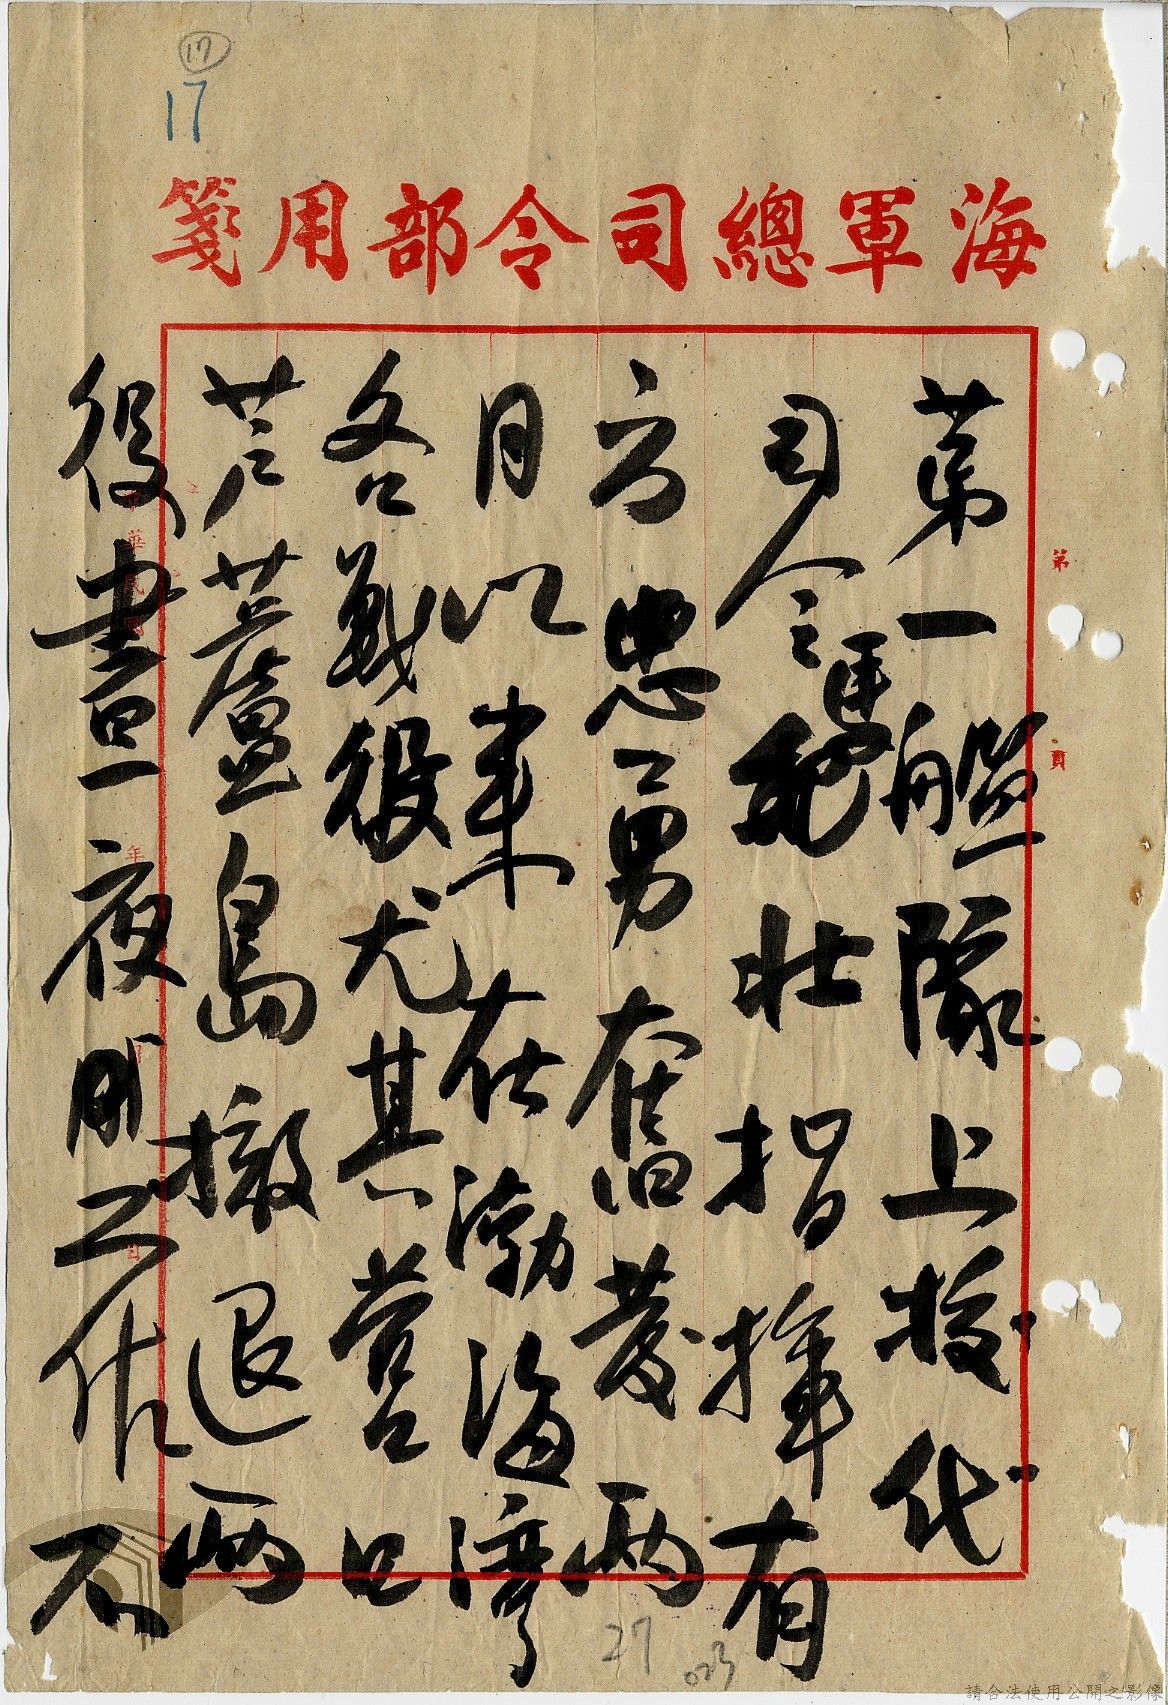 17
17
海軍總司令部用箋
第 頁
第一艦隊上校代
司令馬紀壯指揮有
方忠勇奮發兩
月以來在渤海灣
各戰役尤其營口
芦葫蘆島撤退兩
役晝夜工作不
27
023
請合法使用公開之影像